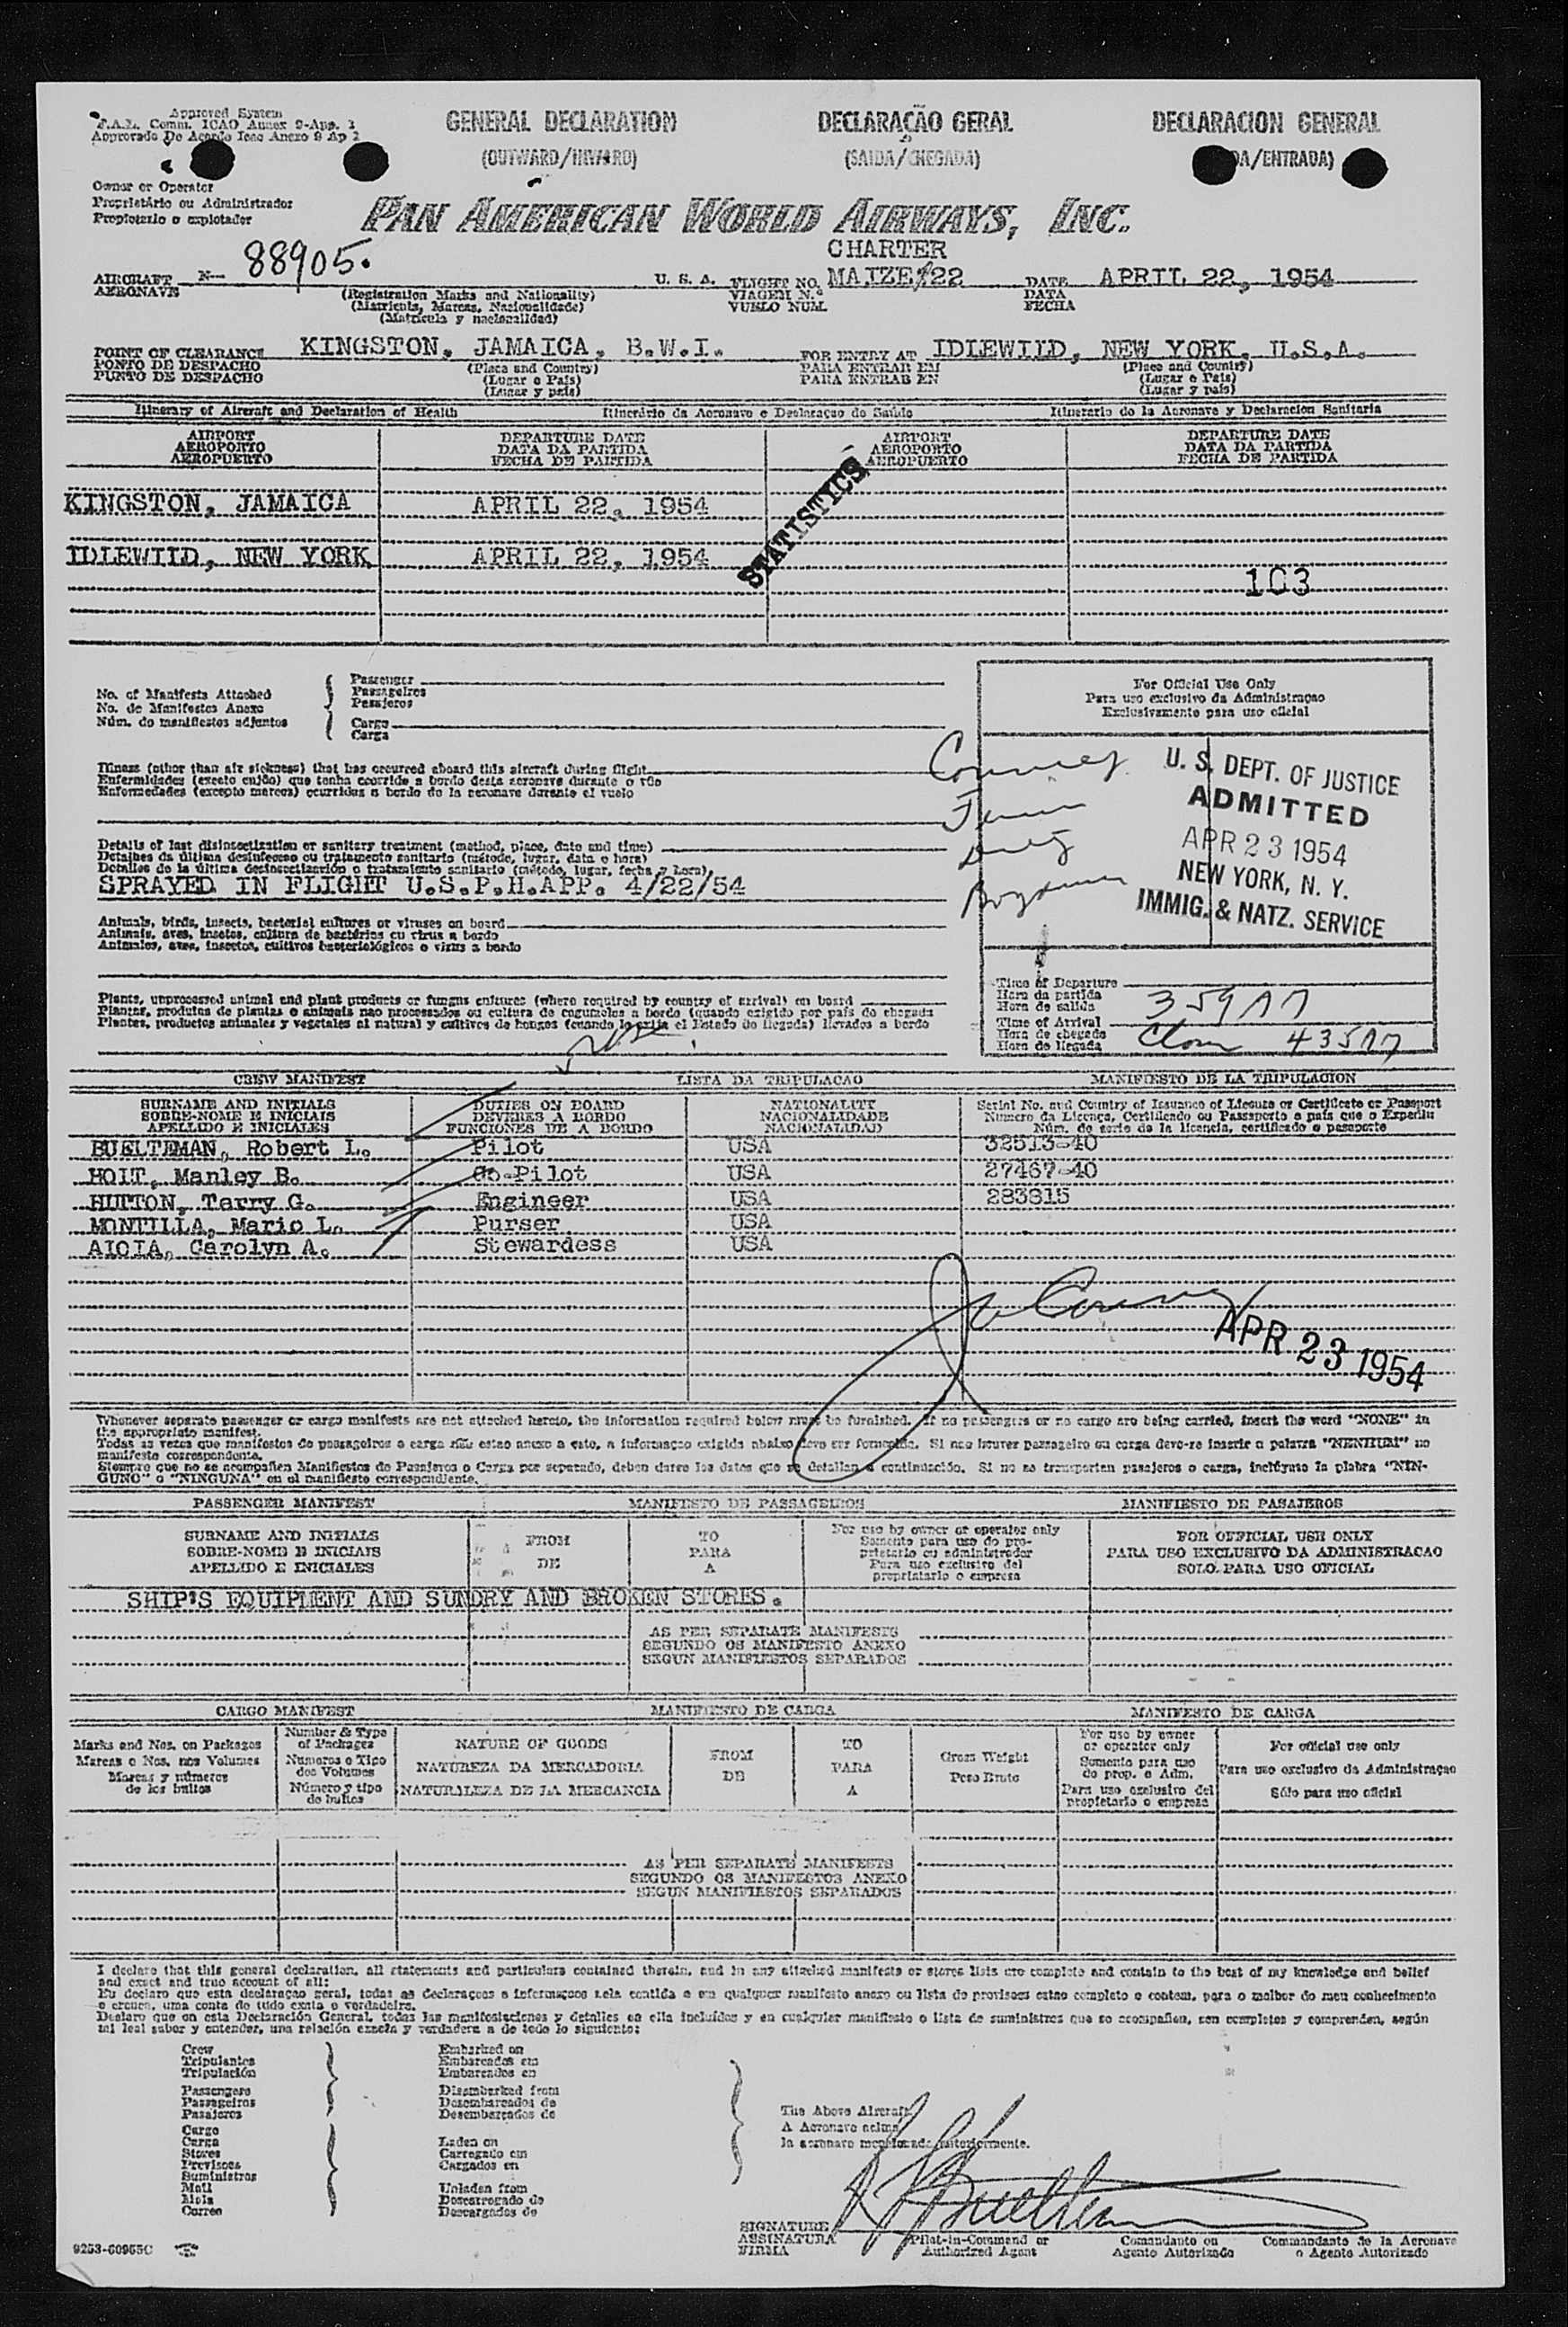 Approved System
F.A.L. Comm. ICAO Annex 9-App. 1
Approvado De Acordo Icao Anexo 9 Ap 1
GENERAL DECLARATION
(OUTWARD/INWARD)
DECLARAÇÃO GERAL
(SAIDA/CHEGADA)
DECLARACION GENERAL
DA/ENTRADA)
Owner or Operator
Proprietário ou Administrador
Propietario o explotador
PAN AMERICAN WORLD AIRWAYS, INC.
CHARTER
AIRCRAFT N- 88905. U. S. A. FLIGHT NO. MAIZE/22 DATE APRIL 22, 1954
AERONAVE VIAGEM N.º DATA
VUELO NUM. FECHA
(Registration Marks and Nationality)
(Matricula, Marcas, Nacionalidade)
(Matrícula y nacionalidad)
POINT OF CLEARANCE KINGSTON, JAMAICA, B.W.I. FOR ENTRY AT IDLEWILD, NEW YORK, U.S.A.
PONTO DE DESPACHO (Place and Country) PARA ENTRAR EM (Place and Country)
PUNTO DE DESPACHO (Lugar e País) PARA ENTRAR EN (Lugar e País)
(Lugar y país) (Lugar y país)
Itinerary of Aircraft and Declaration of Health Itinerário da Aeronave e Declaraçao de Saúde Itinerario de la Aeronave y Declaración Sanitaria
AIRPORT DEPARTURE DATE AIRPORT DEPARTURE DATE
AEROPORTO DATA DA PARTIDA AEROPORTO DATA DA PARTIDA
AEROPUERTO FECHA DE PARTIDA AEROPUERTO FECHA DE PARTIDA
STATISTICS
KINGSTON, JAMAICA APRIL 22, 1954
IDLEWILD, NEW YORK APRIL 22, 1954
103
No. of Manifests Attached
No. de Manifestos Anexo
Núm. de manifiestos adjuntos
Passenger
Passageiros
Pasajeros
Cargo
Carga
For Official Use Only
Para uso exclusivo da Administraçao
Exclusivamente para uso oficial
Illness (other than air sickness) that has occurred aboard this aircraft during flight
Enfermidades (exceto enjôo) que tenha ocorrido a bordo desta aeronave durante o vôo
Enfermedades (excepto mareos) ocurridas a bordo de la aeronave durante el vuelo
U. S. DEPT. OF JUSTICE
ADMITTED
APR 23 1954
NEW YORK, N. Y.
IMMIG. & NATZ. SERVICE
Details of last disinsectization or sanitary treatment (method, place, date and time)
Detalhes da última desinfeccao ou tratamento sanitario (método, lugar, data e hora)
Detalles de la última desinsectización o tratamiento sanitario (método, lugar, fecha y hora)
SPRAYED IN FLIGHT U.S.P.H.APP. 4/22/54
Animals, birds, insects, bacterial cultures or viruses on board
Animais, aves, insetos, cultura de bactérias ou virus a bordo
Animales, aves, insectos, cultivos bacteriológicos o virus a bordo
Plants, unprocessed animal and plant products or fungus cultures (where required by country of arrival) on board
Plantas, produtos de plantas e animais nao processados ou cultura de cogumelos a bordo (quando exigido por país de chegada
Plantas, productos animales y vegetales al natural y cultivos de hongos (cuando lo exija el Estado de llegada) llevados a bordo
Time of Departure
Hora da partida
Hora de salida
Time of Arrival
Hora de chegada
Hora de llegada
359
435
CREW MANIFEST LISTA DA TRIPULACAO MANIFIESTO DE LA TRIPULACION
SURNAME AND INITIALS DUTIES ON BOARD NATIONALITY Serial No. and Country of Issuance of License or Certificate or Passport
SOBRE-NOME E INICIAIS DEVERES A BORDO NACIONALIDADE Numero da Licença, Certificado ou Passaporte e país que o Expediu
APELLIDO E INICIALES FUNCIONES DE A BORDO NACIONALIDAD Núm. de serie de la licencia, certificado o pasaporte
BUELTEMAN, Robert L. Pilot USA 32513-40
HOIT, Manley B. Co-Pilot USA 27467-40
HUTTON, Terry G. Engineer USA 283815
MONTILLA, Mario L. Purser USA
AIOIA, Carolyn A. Stewardess USA
APR 23 1954
Whenever separate passenger or cargo manifests are not attached hereto, the information required below must be furnished. If no passengers or no cargo are being carried, insert the word "NONE" in
the appropriate manifest.
Todas as vezes que manifestos de passageiros e carga não estao anexo a este, a informaçao exigida abaixo deve ser fornecida. Si nao houver passageiro ou carga deve-se inserir a palavra "NENHUM" no
manifesto correspondente.
Siempre que no se acompañen Manifiestos de Pasajeros o Carga por separado, deben darse los datos que se detallan a continuación. Si no se transportan pasajeros o carga, inclúyase la plabra "NIN-
GUNO" o "NINGUNA" en el manifiesto correspondiente.
PASSENGER MANIFEST MANIFESTO DE PASSAGEIROS MANIFIESTO DE PASAJEROS
SURNAME AND INITIALS
SOBRE-NOME E INICIAIS
APELLIDO E INICIALES
FROM
DE
TO
PARA
A
For use by owner or operator only
Somente para uso do pro-
prietario ou administrador
Para uso exclusivo del
propriatario o empresa
FOR OFFICIAL USE ONLY
PARA USO EXCLUSIVO DA ADMINISTRACAO
SOLO PARA USO OFICIAL
SHIP'S EQUIPMENT AND SUNDRY AND BROKEN STORES.
AS PER SEPARATE MANIFESTS
SEGUNDO OS MANIFESTO ANEXO
SEGUN MANIFIESTOS SEPARADOS
CARGO MANIFEST MANIFIESTO DE CARGA MANIFESTO DE CARGA
Marks and Nos. on Packages
Marcas e Nos. nos Volumes
Marcas y números
de los bultos
Number & Type
of Packages
Numeros e Tipo
dos Volumes
Número y tipo
de bultos
NATURE OF GOODS
NATUREZA DA MERCADORIA
NATURALEZA DE LA MERCANCIA
FROM
DE
TO
PARA
A
Gross Weight
Peso Bruto
For use by owner
or operator only
Somente para uso
do prop. e Adm.
Para uso exclusivo del
propietario o empresa
For official use only
Para uso exclusivo da Administraçao
Sólo para uso oficial
AS PER SEPARATE MANIFESTS
SEGUNDO OS MANIFESTOS ANEXO
SEGUN MANIFIESTOS SEPARADOS
I declare that this general declaration, all statements and particulars contained therein, and in any attached manifests or stores lists are complete and contain to the best of my knowledge and belief
and exact and true account of all:
Eu declaro que esta declaraçao geral, todas as declaraçoes e informaçoes nela contida e em qualquer manifesto anexo ou lista de provisoes estao completo e contem, para o melhor do meu conhecimento
e crença, uma conta de tudo exata e verdadeira.
Declaro que en esta Declaración General, todas las manifestaciones y detalles en ella incluídos y en cualquier manifiesto o lista de suministros que se acompañen, son completos y comprenden, según
mi leal saber y entender, una relación exacta y verdadera a de todo lo siguiente:
Crew
Tripulantes
Tripulación
Passengers
Passageiros
Pasajeros
Cargo
Carga
Stores
Previsoes
Suministros
Mail
Mala
Correo
Embarked on
Embarcados em
Embarcados en
Disembarked from
Desembarcados de
Desembarcados de
Laden on
Carregado em
Cargados en
Unladen from
Descarregado de
Descargados de
The Above Aircraft
A Aeronave acima
la aeronave mencionada anteriormente.
SIGNATURE
ASSINATURA
FIRMA
Pilot-in-Command or
Authorized Agent
Comandante ou
Agente Autorizado
Commandante de la Aeronave
o Agente Autorizado
9253-60955C